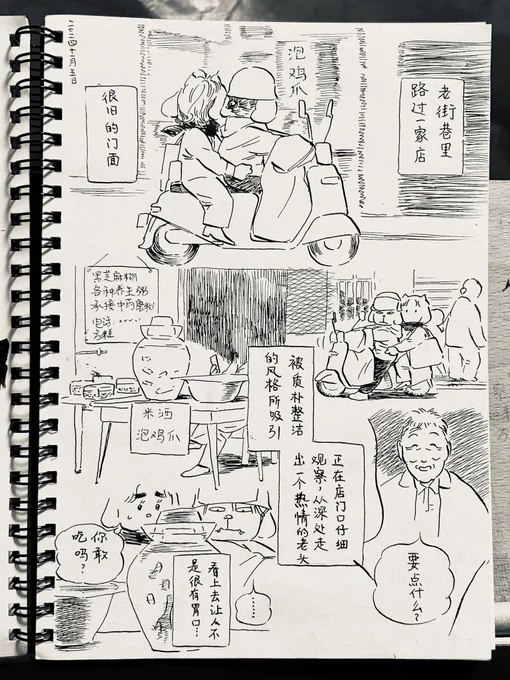 二〇二四十一月五日
老街巷里
路过一家店
泡鸡爪
很旧的门面
黑芝麻糊
各种养生粥
承接中药磨粉
电话:……
米酒
泡鸡爪
被质朴整洁
的风格所吸引
正在店门口仔细
观察，从深处走
出一个热情的老头
要点什么？
看上去让人不
是很有胃口…
……
你敢
吃吗？